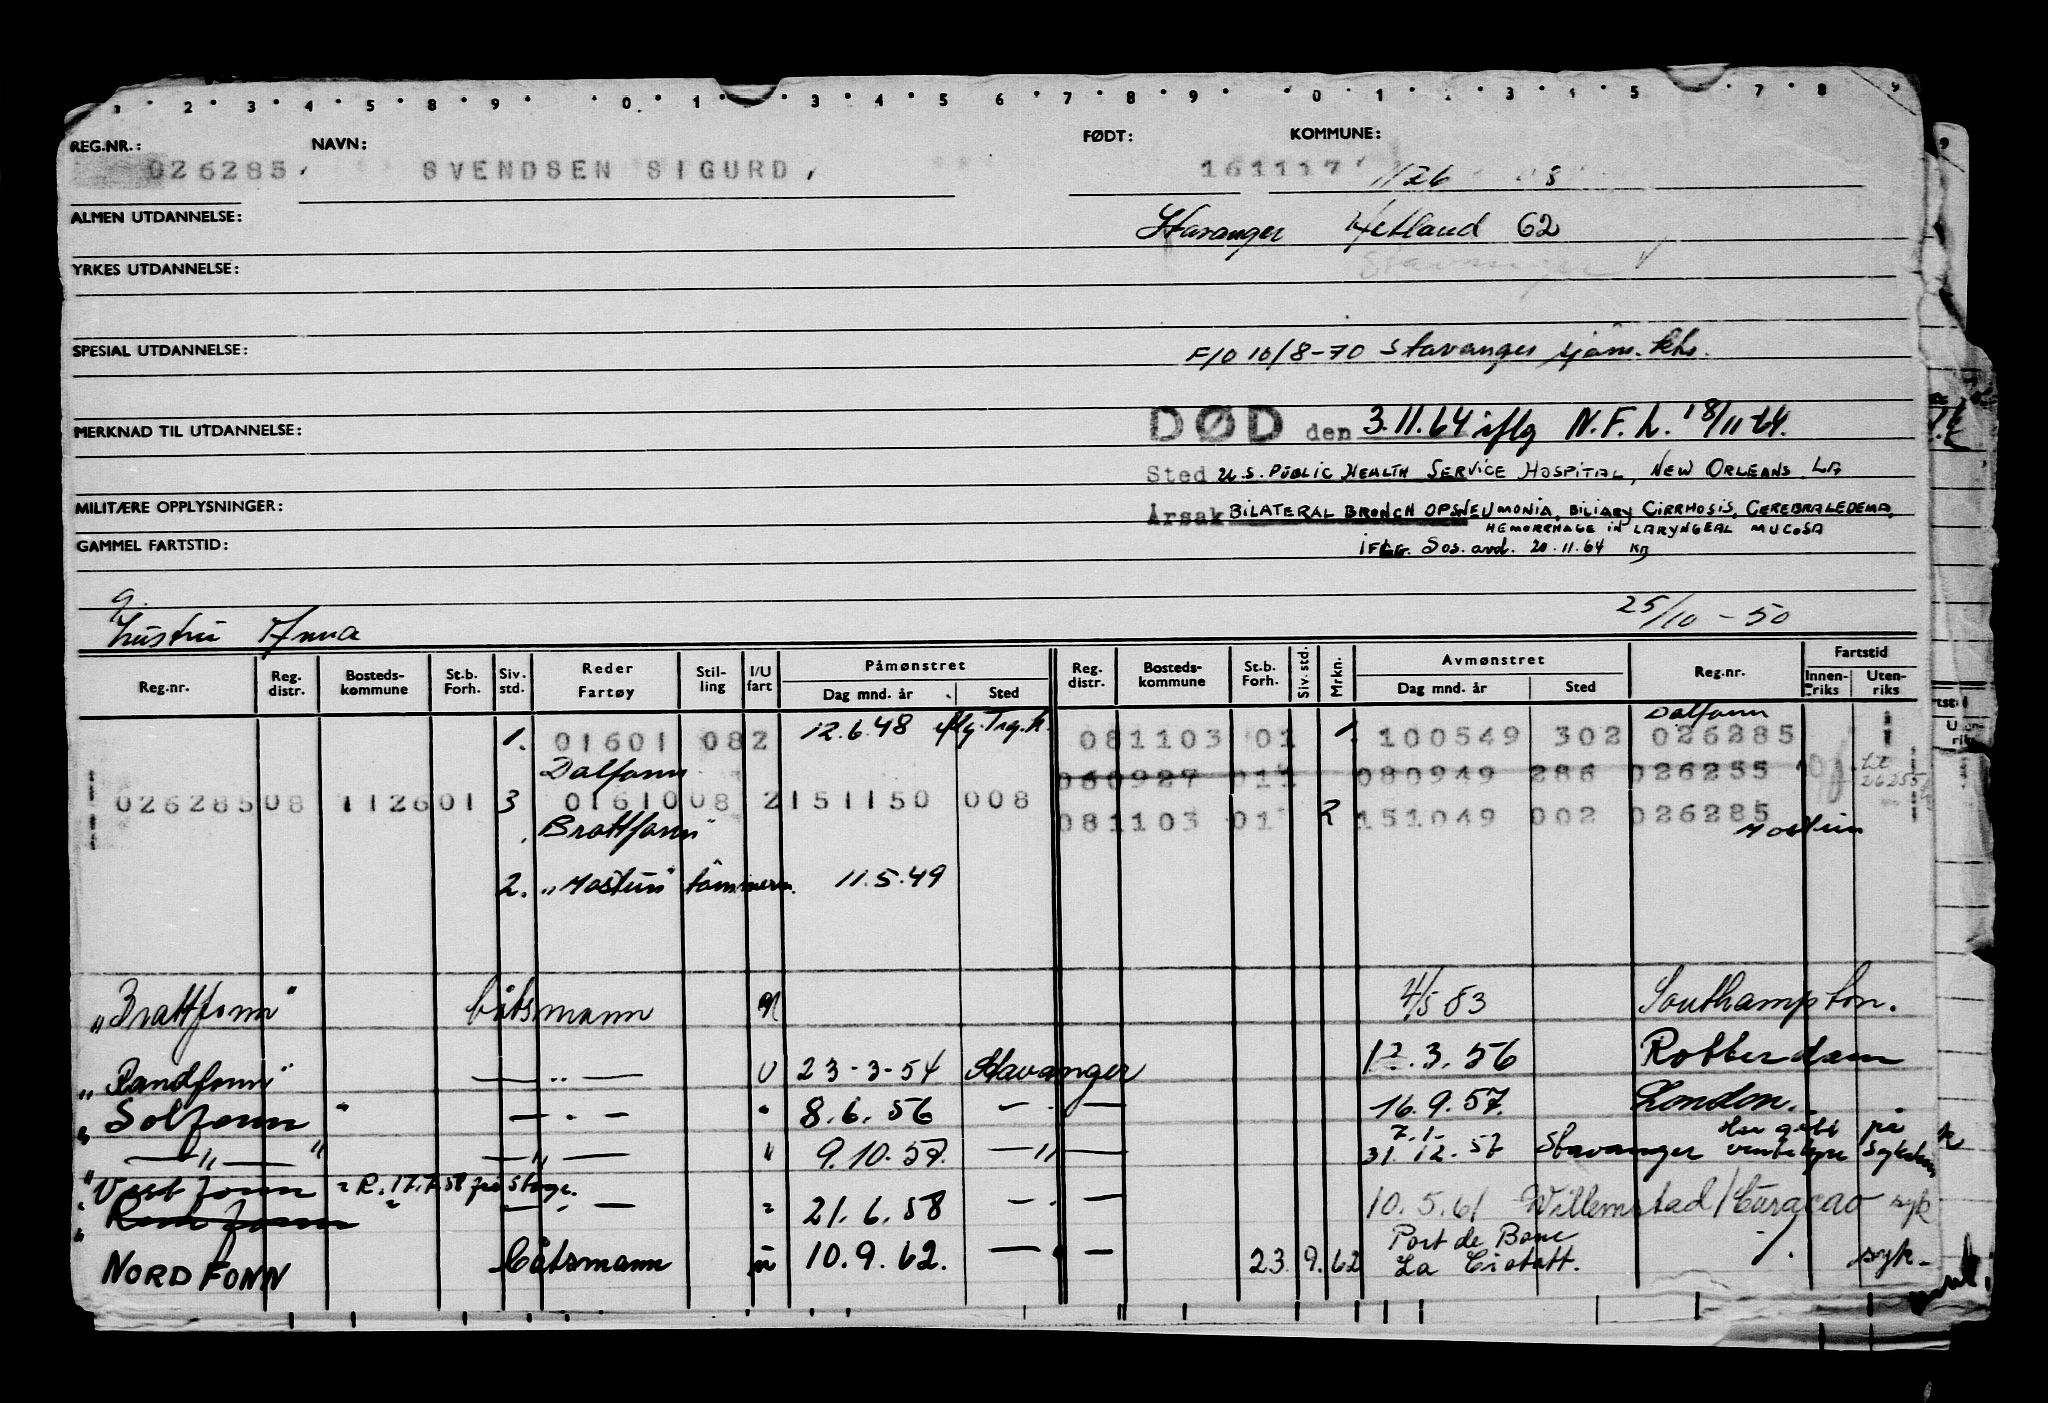 REG.NR.: NAVN: FØDT: KOMMUNE:
026285, SVENDSEN SIGURD, 161117 1126
ALMEN UTDANNELSE:
Stavanger Hetland 62
YRKES UTDANNELSE:
Stavanger
SPESIAL UTDANNELSE:
F/O 10/8-70 Stavanger sjøm. kks.
MERKNAD TIL UTDANNELSE:
DØD den 3.11.64 iflg N.F.L. 18/11-64.
Sted U.S. PUBLIC HEALTH SERVICE HOSPITAL, NEW ORLEANS. LA
MILITÆRE OPPLYSNINGER:
Årsak BILATERAL BRONCH OPSNEUMONIA, BILIARY CIRRHOSIS, CEREBRALEDEMA,
HEMORRHAGE IN LARYNGEAL MUCOSA
GAMMEL FARTSTID:
IFLG. Sos. avd. 20.11.64 KB
g.
hustru Anna 25/10-50
Reg.nr. Reg. distr. Bosteds- kommune St.b. Forh. Siv. std. Reder Fartøy Stil- ling I/U fart Påmønstret Dag mnd. år Sted Reg. distr. Bosteds- kommune St.b. Forh. Siv. std. Mrkn. Avmønstret Dag mnd. år Sted Reg.nr. Fartstid Innen- riks Uten- riks
Dalfonn
1. 01601 082 12.6.48 iflg. Trg.k. 081103 01 1. 100549 302 026285
Dalfonn 060927 011 080949 286 026255
026285 08 1126 01 3 01610 08 2 151150 008
Brattfonn 081103 01 2 151049 002 026285
Mostun
2. "Mostun" tømmerm. 11.5.49
"Brattfonn" båtsmann 4/5 53 Southampton.
"Randfonn" — " — U 23-3-54 Stavanger 12.3.56 Rotterdam
"Solfonn" — " — " 8.6.56 — " — 16.9.57. London.
— " — — " — " 9.10.57. — " — 7.1. 31.12.57 Stavanger
"Vestfonn" R. 17.7.58 fra Stvgr.
Randfonn — " — " 21.6.58 — " — 10.5.61 Willemstad/Curaçao syk
Port de Bouc
NORDFONN Båtsmann u 10.9.62. — " — 23.9.62 La Ciotatt. -/. syk.